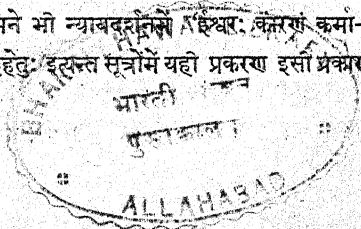 मने भी न्यायदर्शनमें ईश्वरः कारणं कर्मा-
हेतुः इत्यन्त सूत्रोंमें यही प्रकरण इसी प्रकार
BHA
भारती
पुस्तकालय
ALLAHABAD